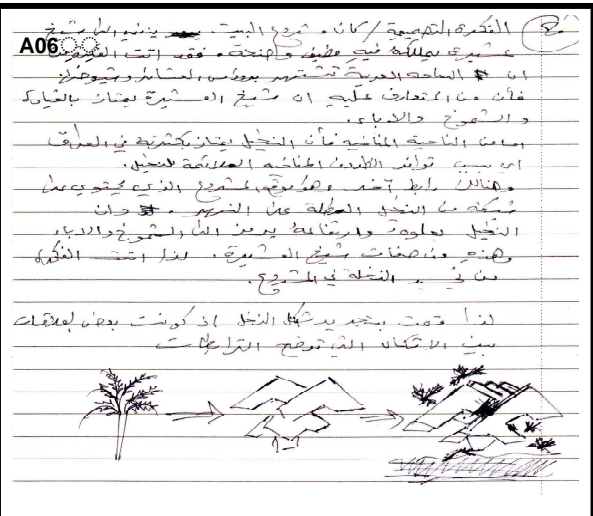 A06
الفكرة التصميمية / كان مشروع البيت
عشيري يملكه فيه مضيف واجنحة. فقد اتت الفلسفة
ان الساحة العربية تشتهر برؤوس العشائر وشيوخها
فأن من المتعارف عليه ان شيخ العشيرة يمتاز بالقيادة
والشموخ والاباء.
اما من الناحية المناخية فأن النخيل يمتاز بكثرته في العراق
اي بسبب توافر الظروف المناخية الملائمة للنخيل.
وهنالك رابط آخر وهو موقع المشروع الذي يحتوي على
من النخيل المطلة على النهر. وان
النخيل بعلوه وارتفاعه يرمز الى الشموخ والاباء
وهذه من صفات شيخ العشيرة. لذا اتت الفكرة
من النخلة في المشروع.
لذا قمت بتجريد شكل النخل اذ كونت بعض العلاقات
بين الاشكال التي توضح الترابطات